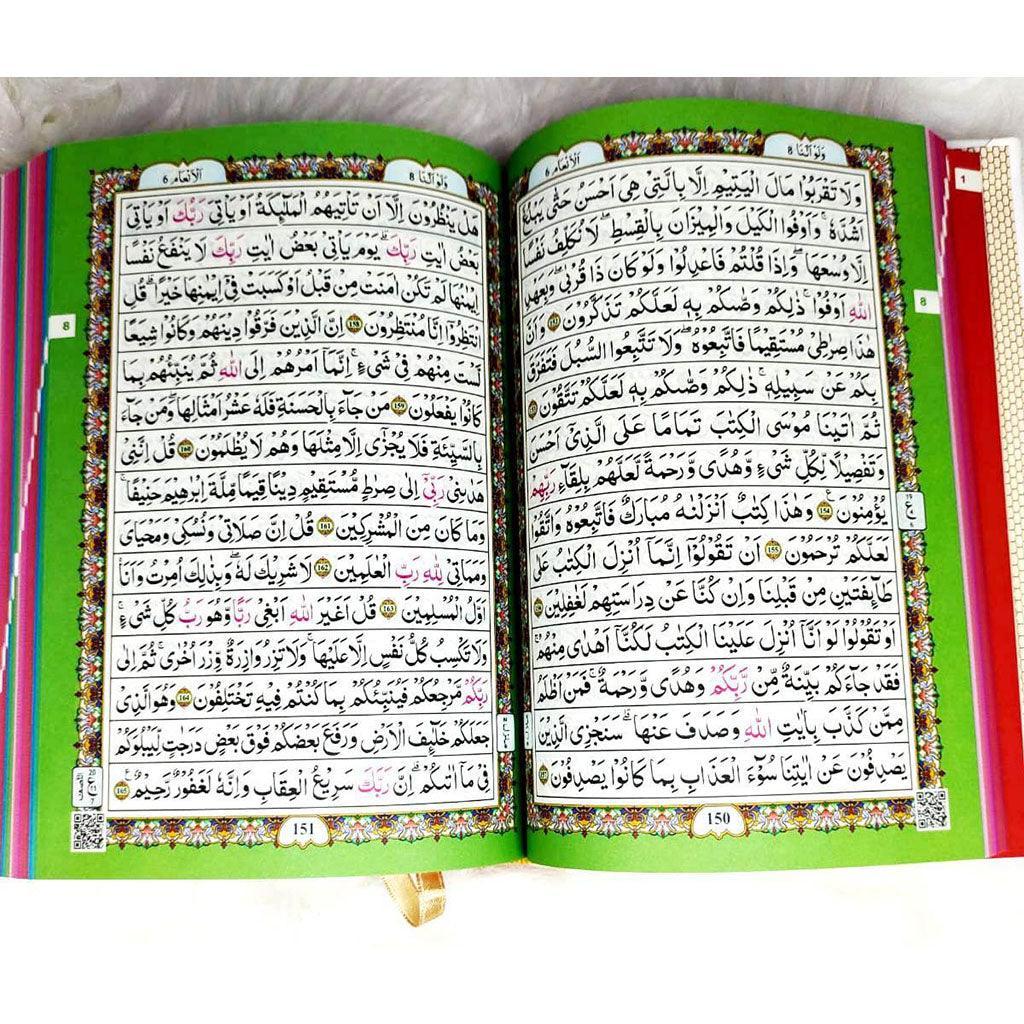 وَلَوْ اَنَّنَا ٨
اَلْاَنْعَام ٦
وَلَا تَقْرَبُوْا مَالَ الْيَتِيْمِ اِلَّا بِالَّتِيْ هِيَ اَحْسَنُ حَتّٰى يَبْلُغَ
اَشُدَّهٗ ۚ وَاَوْفُوا الْكَيْلَ وَالْمِيْزَانَ بِالْقِسْطِ ۚ لَا نُكَلِّفُ نَفْسًا
اِلَّا وُسْعَهَا ۚ وَاِذَا قُلْتُمْ فَاعْدِلُوْا وَلَوْ كَانَ ذَا قُرْبٰى ۚ وَبِعَهْدِ
اللّٰهِ اَوْفُوْا ۭ ذٰلِكُمْ وَصّٰىكُمْ بِهٖ لَعَلَّكُمْ تَذَكَّرُوْنَ وَاَنَّ
هٰذَا صِرَاطِيْ مُسْتَقِيْمًا فَاتَّبِعُوْهُ ۚ وَلَا تَتَّبِعُوا السُّبُلَ فَتَفَرَّقَ
بِكُمْ عَنْ سَبِيْلِهٖ ۭ ذٰلِكُمْ وَصّٰىكُمْ بِهٖ لَعَلَّكُمْ تَتَّقُوْنَ
ثُمَّ اٰتَيْنَا مُوْسَى الْكِتٰبَ تَمَامًا عَلَى الَّذِيْٓ اَحْسَنَ
وَتَفْصِيْلًا لِّكُلِّ شَيْءٍ وَّهُدًى وَّرَحْمَةً لَّعَلَّهُمْ بِلِقَآءِ رَبِّهِمْ
يُؤْمِنُوْنَ 154 وَهٰذَا كِتٰبٌ اَنْزَلْنٰهُ مُبٰرَكٌ فَاتَّبِعُوْهُ وَاتَّقُوْا
لَعَلَّكُمْ تُرْحَمُوْنَ 155 اَنْ تَقُوْلُوْٓا اِنَّمَآ اُنْزِلَ الْكِتٰبُ عَلٰى
طَآىِٕفَتَيْنِ مِنْ قَبْلِنَا وَاِنْ كُنَّا عَنْ دِرَاسَتِهِمْ لَغٰفِلِيْنَ
اَوْ تَقُوْلُوْا لَوْ اَنَّآ اُنْزِلَ عَلَيْنَا الْكِتٰبُ لَكُنَّآ اَهْدٰى مِنْهُمْ ۚ
فَقَدْ جَآءَكُمْ بَيِّنَةٌ مِّنْ رَّبِّكُمْ وَهُدًى وَّرَحْمَةٌ ۚ فَمَنْ اَظْلَمُ
مِمَّنْ كَذَّبَ بِاٰيٰتِ اللّٰهِ وَصَدَفَ عَنْهَا ۭ سَنَجْزِي الَّذِيْنَ
يَصْدِفُوْنَ عَنْ اٰيٰتِنَا سُوْٓءَ الْعَذَابِ بِمَا كَانُوْا يَصْدِفُوْنَ
150
1
8
وَلَوْ اَنَّنَا ٨
اَلْاَنْعَام ٦
هَلْ يَنْظُرُوْنَ اِلَّآ اَنْ تَاْتِيَهُمُ الْمَلٰٓىِٕكَةُ اَوْ يَاْتِيَ رَبُّكَ اَوْ يَاْتِيَ
بَعْضُ اٰيٰتِ رَبِّكَ ۭ يَوْمَ يَاْتِيْ بَعْضُ اٰيٰتِ رَبِّكَ لَا يَنْفَعُ نَفْسًا
اِيْمَانُهَا لَمْ تَكُنْ اٰمَنَتْ مِنْ قَبْلُ اَوْ كَسَبَتْ فِيْٓ اِيْمَانِهَا خَيْرًا ۭ قُلِ
انْتَظِرُوْٓا اِنَّا مُنْتَظِرُوْنَ 158 اِنَّ الَّذِيْنَ فَرَّقُوْا دِيْنَهُمْ وَكَانُوْا شِيَعًا
لَّسْتَ مِنْهُمْ فِيْ شَيْءٍ ۭ اِنَّمَآ اَمْرُهُمْ اِلَى اللّٰهِ ثُمَّ يُنَبِّئُهُمْ بِمَا
كَانُوْا يَفْعَلُوْنَ 159 مَنْ جَآءَ بِالْحَسَنَةِ فَلَهٗ عَشْرُ اَمْثَالِهَا ۚ وَمَنْ جَآءَ
بِالسَّيِّئَةِ فَلَا يُجْزٰٓى اِلَّا مِثْلَهَا وَهُمْ لَا يُظْلَمُوْنَ 160 قُلْ اِنَّنِيْ
هَدٰىنِيْ رَبِّيْٓ اِلٰى صِرَاطٍ مُّسْتَقِيْمٍ ڬ دِيْنًا قِيَمًا مِّلَّةَ اِبْرٰهِيْمَ حَنِيْفًا ۚ
وَمَا كَانَ مِنَ الْمُشْرِكِيْنَ 161 قُلْ اِنَّ صَلَاتِيْ وَنُسُكِيْ وَمَحْيَايَ
وَمَمَاتِيْ لِلّٰهِ رَبِّ الْعٰلَمِيْنَ 162 لَا شَرِيْكَ لَهٗ ۚ وَبِذٰلِكَ اُمِرْتُ وَاَنَا
اَوَّلُ الْمُسْلِمِيْنَ 163 قُلْ اَغَيْرَ اللّٰهِ اَبْغِيْ رَبًّا وَّهُوَ رَبُّ كُلِّ شَيْءٍ ۭ
وَلَا تَكْسِبُ كُلُّ نَفْسٍ اِلَّا عَلَيْهَا ۚ وَلَا تَزِرُ وَازِرَةٌ وِّزْرَ اُخْرٰى ۚ ثُمَّ اِلٰى
رَبِّكُمْ مَّرْجِعُكُمْ فَيُنَبِّئُكُمْ بِمَا كُنْتُمْ فِيْهِ تَخْتَلِفُوْنَ 164 وَهُوَ الَّذِيْ
جَعَلَكُمْ خَلٰٓىِٕفَ الْاَرْضِ وَرَفَعَ بَعْضَكُمْ فَوْقَ بَعْضٍ دَرَجٰتٍ لِّيَبْلُوَكُمْ
فِيْ مَآ اٰتٰىكُمْ ۭ اِنَّ رَبَّكَ سَرِيْعُ الْعِقَابِ وَاِنَّهٗ لَغَفُوْرٌ رَّحِيْمٌ 165
151
8